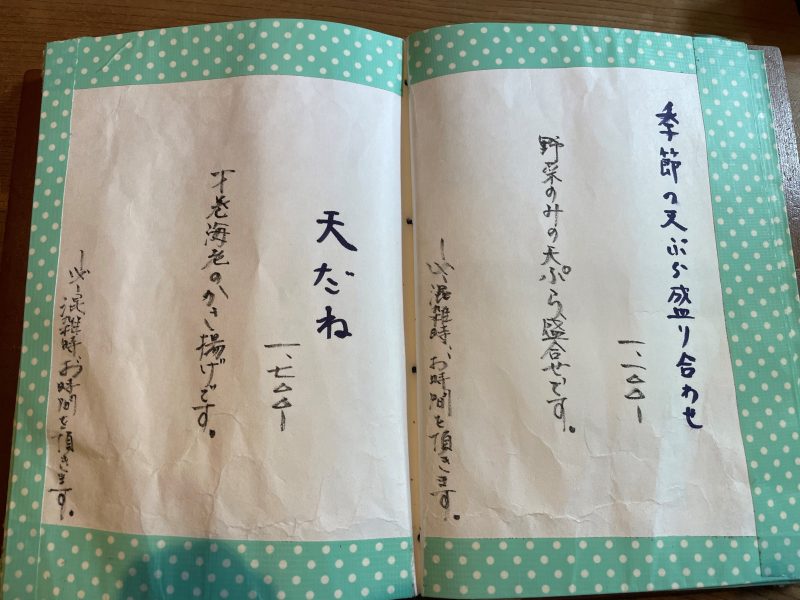 季節の天ぷら盛り合わせ
一、一〇〇
野菜のみの天ぷら盛合せです。
混雑時、お時間を頂きます。
天だね
一、七〇〇
才巻海老のかき揚げです。
混雑時、お時間を頂きます。